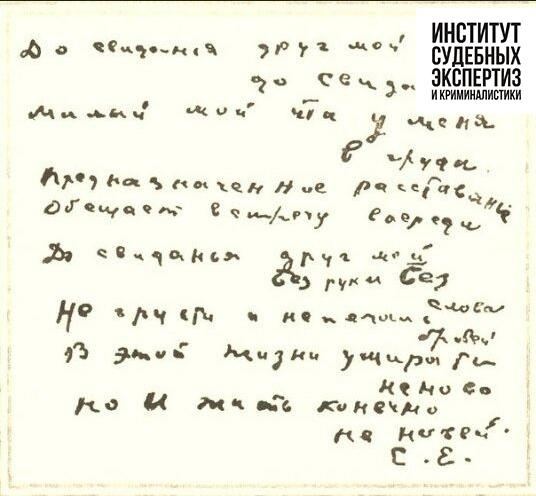 ИНСТИТУТ
СУДЕБНЫХ
ЭКСПЕРТИЗ
И КРИМИНАЛИСТИКИ
До свиданья друг мой
до свида
милый мой что у меня
в груди.
Предназначенное расставанье
Обещает встречу впереди
До свиданья друг мой
без руки без
слова
Не грусти и не печаль
бровей
В этой жизни умирать
не ново
но и жить конечно
не новей.
С. Е.